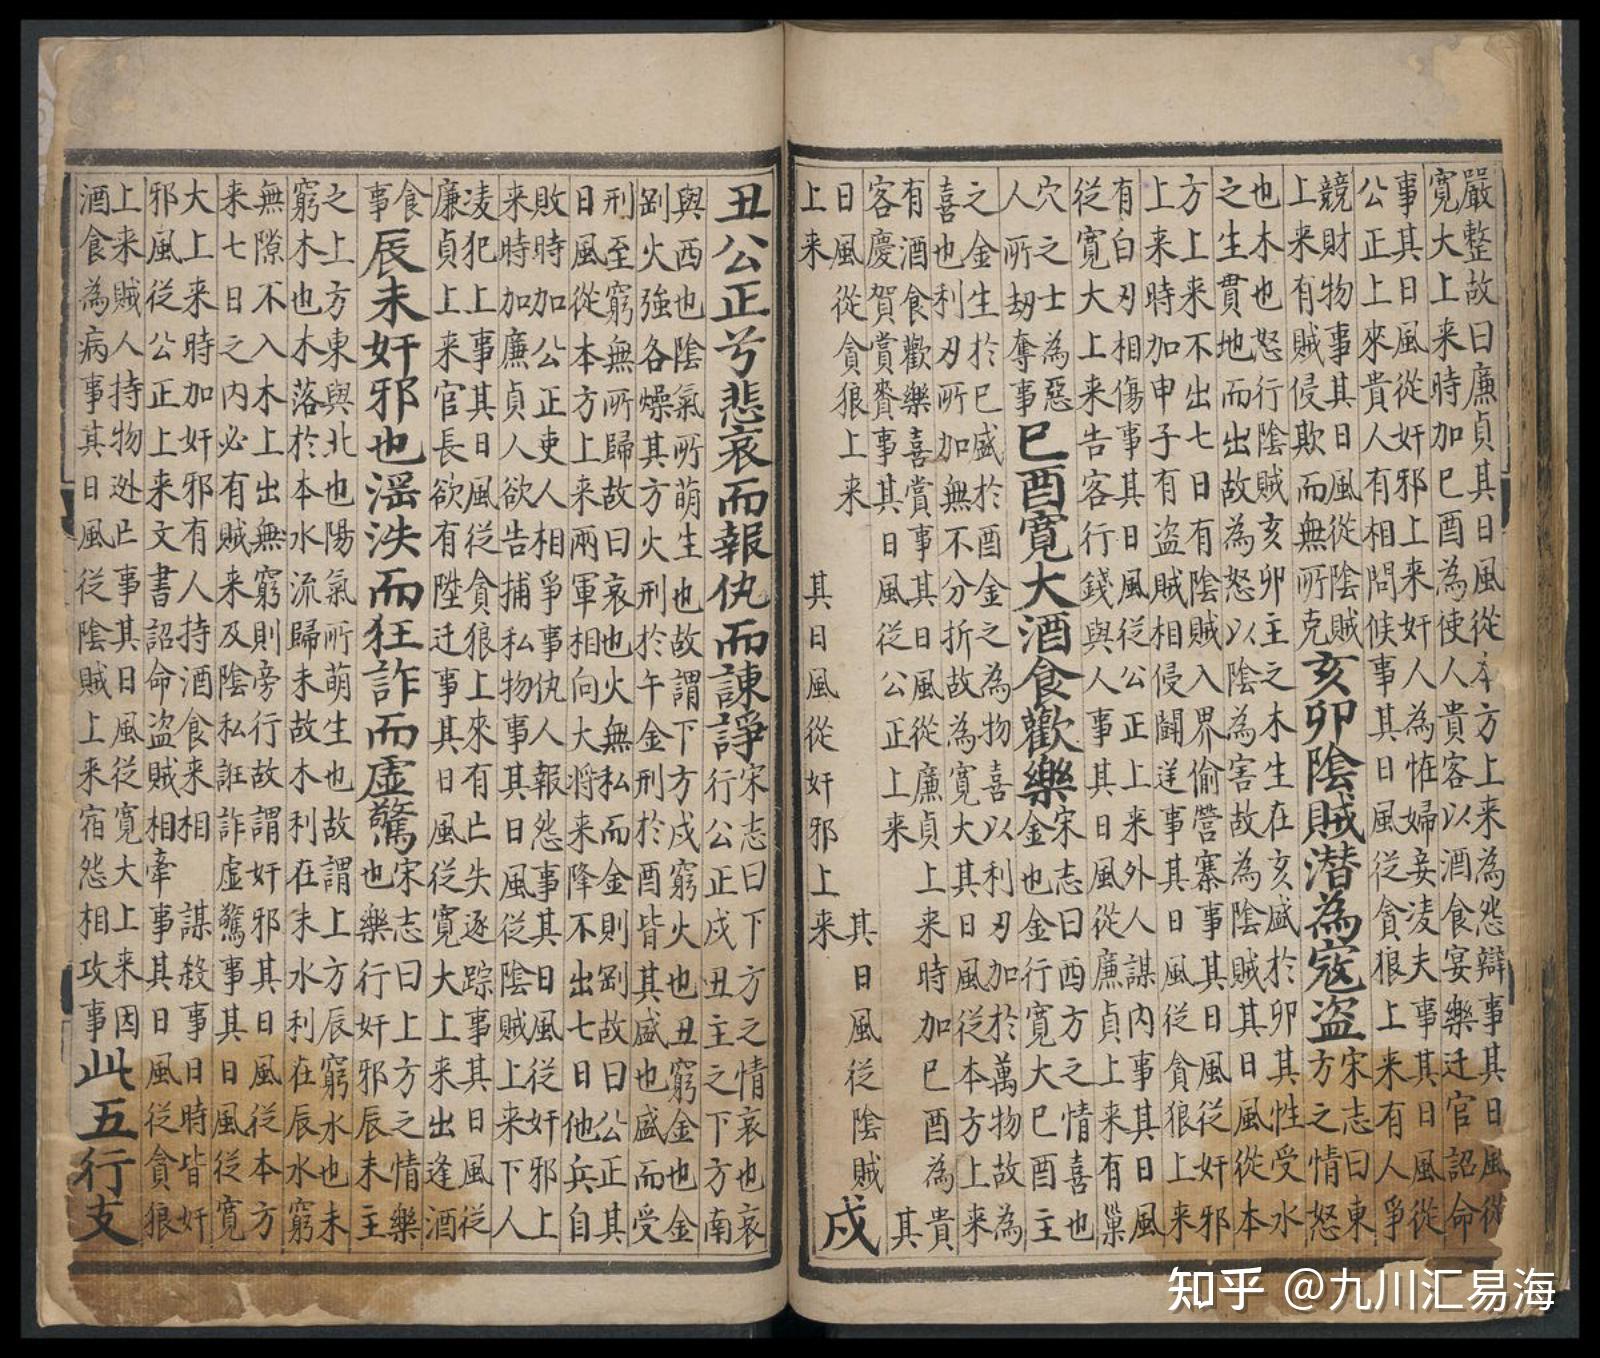 嚴整故曰廉貞其日風從本方上来為怨辯事其日風從
寬大上来時加巳酉為使人貴客以酒食宴樂迁官詔命
事其日風從奸邪上来奸人為恠婦妾凌夫事其日風從
公正上來貴人有相問候事其日風從貪狼上来有人爭
競財物事其日風從陰賊
上来有賊侵欺而無所克
亥卯陰賊潜為寇盗
宋志曰東
方之情怒
也木也怒行陰賊亥卯主之木生在亥盛於卯其性受水
之生貫地而出故為怒以陰為害故為陰賊其日風從本
方上来不出七日有陰賊入界偷營寨事其日風從奸邪
上来時加申子有盗賊相侵闘迯事其日風從貪狼上来
有白刃相傷事其日風從公正上来外人謀内事其日風
從寬大上来告客行錢與人事其日風從廉貞上来有巢
穴之士為惡
人所劫奪事
巳酉寬大酒食歡樂
宋志曰酉方之情喜也
金也金行寬大巳酉主
之金生於巳盛於酉金之為物喜以利刃加於萬物故為
喜也利刃所加無不分折故為寬大其日風從本方上来
有酒食歡樂喜賞事其日風從廉貞上来時加巳酉為貴
客慶賀賞賚事其日風從公正上来 其
日風從貪狼上来 其日風從陰賊
上来 其日風從奸邪上来
戌
丑公正兮悲哀而報仇而諌諍
宋志曰下方之情哀也哀
行公正戌丑主之下方南
與西也陰氣所萌生也故謂下方戌窮火也丑窮金也金
剛火強各燥其方火刑於午金刑於酉皆其盛也盛而受
刑至窮無所歸故曰哀也火無私而金則剛故曰公正其
日風從本方上来兩軍相向大将来降不出七日他兵自
敗時加公正吏人相爭事仇人報怨事其日風從奸邪上
来時加廉貞人欲告捕私物事其日風從陰賊上来下人
凌犯上事其日風從貪狼上來有亡失逐踪事其日風從
廉貞上来官長欲有陞迁事其日風從寬大上来出逢酒
食
事
辰未奸邪也滛泆而狂詐而虚驚
宋志曰上方之情樂
也樂行奸邪辰未主
之上方東與北也陽氣所萌生也故謂上方辰窮水也未
窮木也木落於本水流歸末故木利在未水利在辰水窮
無隙不入木上出無窮則旁行故謂奸邪其日風從本方
来七日之内必有賊来及陰私誑詐虚驚事其日風從寬
大上来時加奸邪有人持酒食来相 謀殺事日時皆奸
邪風從公正上来文書詔命盗賊相牽事其日風從貪狼
上来賊人持物迯亡事其日風從寬大上来因
酒食為病事其日風從陰賊上来宿怨相攻事
此五行支
知乎 @九川汇易海